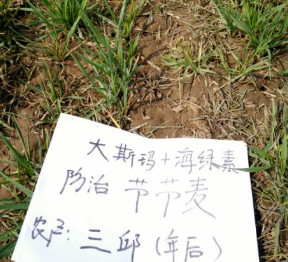 大斯玛+海绿素
防治 节节麦
农户: 三邱 (年后)